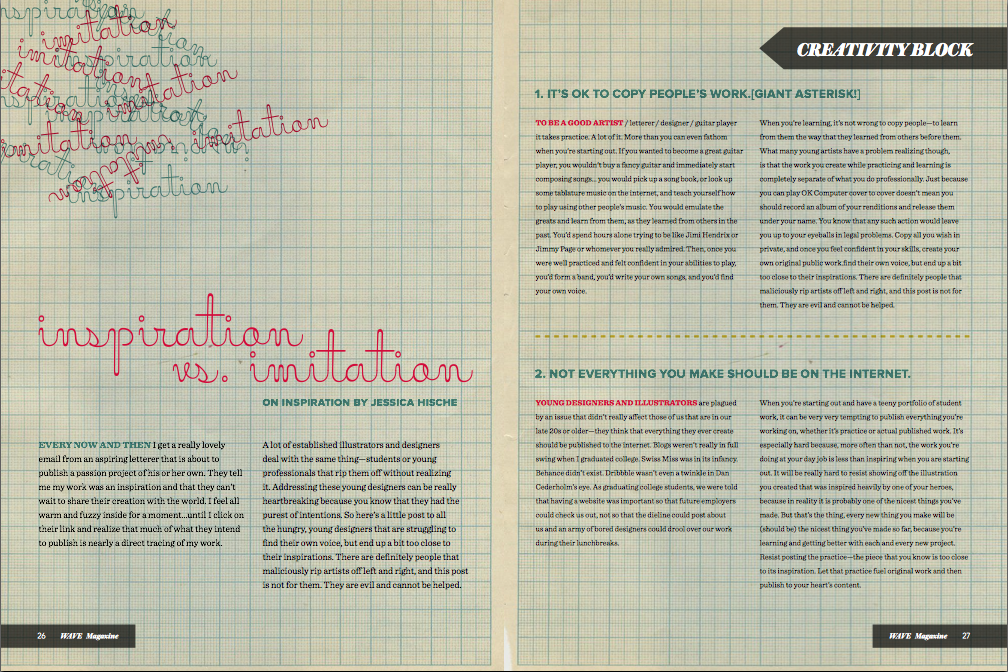 inspiration
imitation
imitation
inspiration
imitation
imitation
imitation
inspiration
inspiration
vs. imitation
ON INSPIRATION BY JESSICA HISCHE
EVERY NOW AND THEN I get a really lovely
email from an aspiring letterer that is about to
publish a passion project of his or her own. They tell
me my work was an inspiration and that they can't
wait to share their creation with the world. I feel all
warm and fuzzy inside for a moment...until I click on
their link and realize that much of what they intend
to publish is nearly a direct tracing of my work.
A lot of established illustrators and designers
deal with the same thing—students or young
professionals that rip them off without realizing
it. Addressing these young designers can be really
heartbreaking because you know that they had the
purest of intentions. So here's a little post to all
the hungry, young designers that are struggling to
find their own voice, but end up a bit too close to
their inspirations. There are definitely people that
maliciously rip artists off left and right, and this post
is not for them. They are evil and cannot be helped.
26 WAVE Magazine
CREATIVITY BLOCK
1. IT'S OK TO COPY PEOPLE'S WORK.[GIANT ASTERISK!]
TO BE A GOOD ARTIST / letterer / designer / guitar player
it takes practice. A lot of it. More than you can even fathom
when you're starting out. If you wanted to become a great guitar
player, you wouldn't buy a fancy guitar and immediately start
composing songs... you would pick up a song book, or look up
some tablature music on the internet, and teach yourself how
to play using other people's music. You would emulate the
greats and learn from them, as they learned from others in the
past. You'd spend hours alone trying to be like Jimi Hendrix or
Jimmy Page or whomever you really admired. Then, once you
were well practiced and felt confident in your abilities to play,
you'd form a band, you'd write your own songs, and you'd find
your own voice.
When you're learning, it's not wrong to copy people—to learn
from them the way that they learned from others before them.
What many young artists have a problem realizing though,
is that the work you create while practicing and learning is
completely separate of what you do professionally. Just because
you can play OK Computer cover to cover doesn't mean you
should record an album of your renditions and release them
under your name. You know that any such action would leave
you up to your eyeballs in legal problems. Copy all you wish in
private, and once you feel confident in your skills, create your
own original public work.find their own voice, but end up a bit
too close to their inspirations. There are definitely people that
maliciously rip artists off left and right, and this post is not for
them. They are evil and cannot be helped.
2. NOT EVERYTHING YOU MAKE SHOULD BE ON THE INTERNET.
YOUNG DESIGNERS AND ILLUSTRATORS are plagued
by an issue that didn't really affect those of us that are in our
late 20s or older—they think that everything they ever create
should be published to the internet. Blogs weren't really in full
swing when I graduated college. Swiss Miss was in its infancy.
Behance didn't exist. Dribbble wasn't even a twinkle in Dan
Cederholm's eye. As graduating college students, we were told
that having a website was important so that future employers
could check us out, not so that the dieline could post about
us and an army of bored designers could drool over our work
during their lunchbreaks.
When you're starting out and have a teeny portfolio of student
work, it can be very very tempting to publish everything you're
working on, whether it's practice or actual published work. It's
especially hard because, more often than not, the work you're
doing at your day job is less than inspiring when you are starting
out. It will be really hard to resist showing off the illustration
you created that was inspired heavily by one of your heroes,
because in reality it is probably one of the nicest things you've
made. But that's the thing, every new thing you make will be
(should be) the nicest thing you've made so far, because you're
learning and getting better with each and every new project.
Resist posting the practice—the piece that you know is too close
to its inspiration. Let that practice fuel original work and then
publish to your heart's content.
WAVE Magazine 27